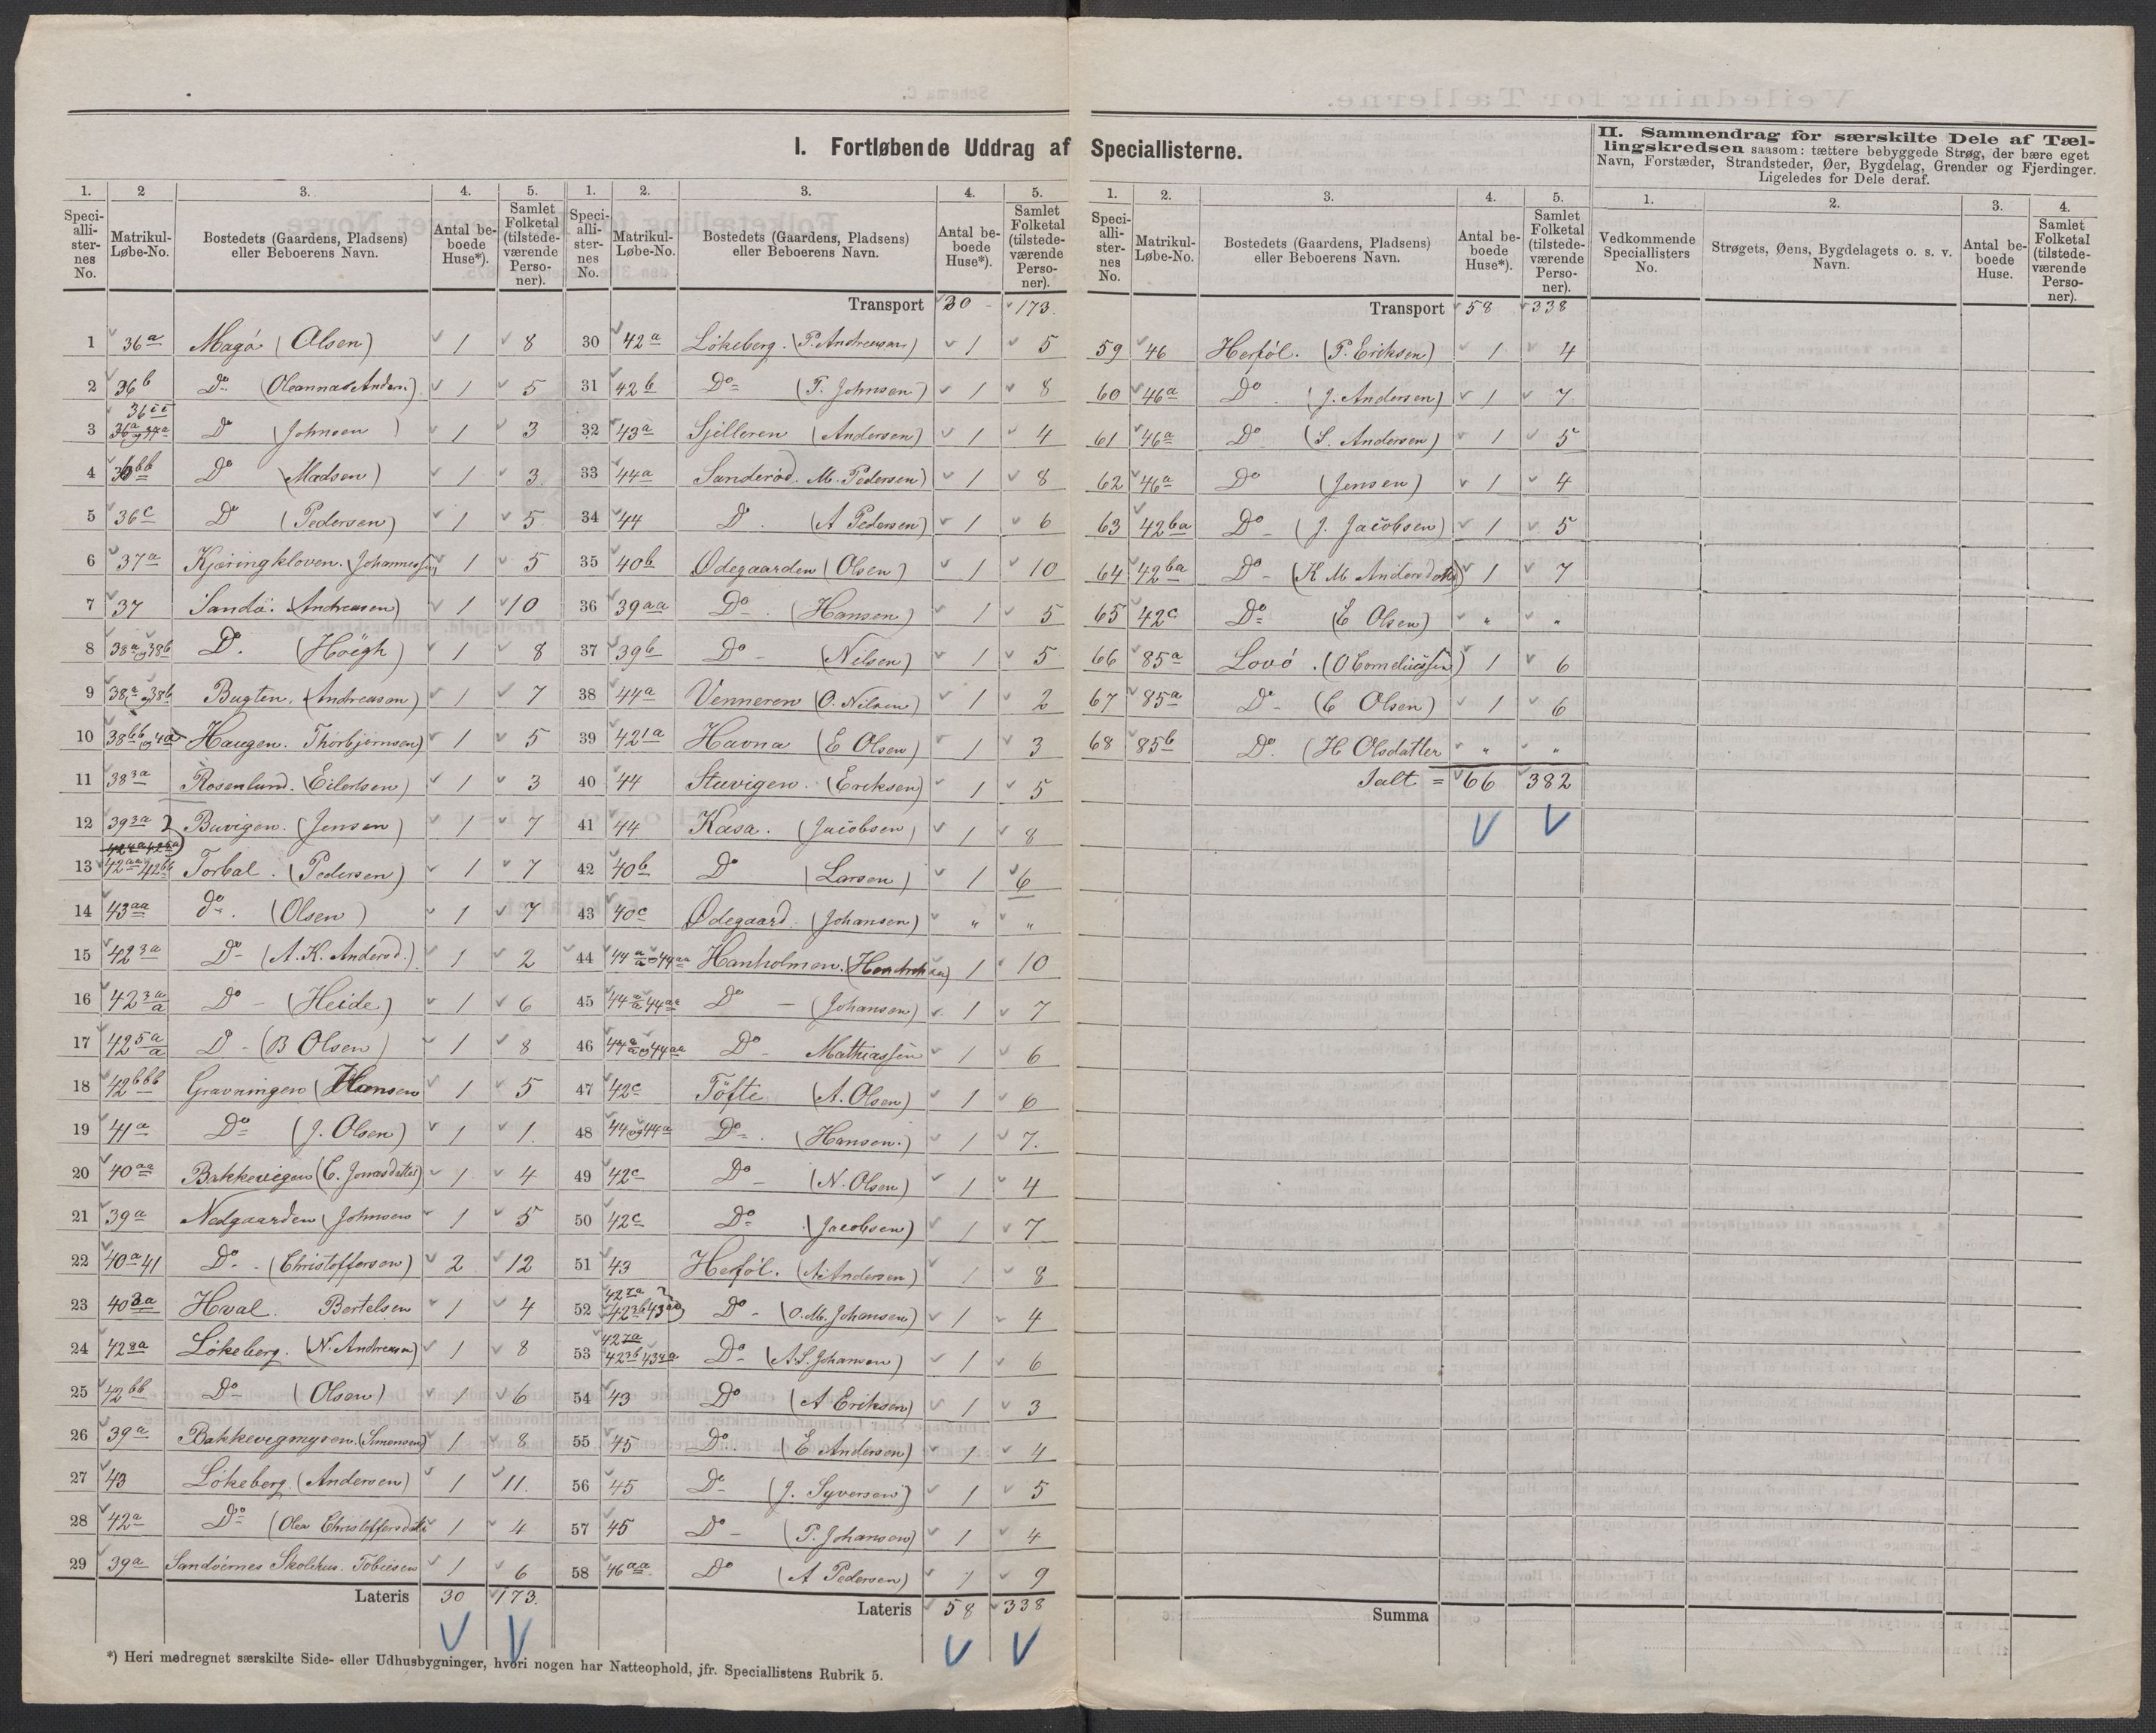 I. Fortløbende Uddrag af Speciallisterne.
II. Sammendrag for særskilte Dele af Tæl-
lingskredsen saasom: tættere bebyggede Strøg, der bære eget
Navn, Forstæder, Strandsteder, Øer, Bygdelag, Grender og Fjerdinger.
Ligeledes for Dele deraf.
1. 2 3. 4. 5.
Speci-alli-ster-nes No. Matrikul-Løbe-No. Bostedets (Gaardens, Pladsens) eller Beboerens Navn. Antal be-boede Huse*). Samlet Folketal (tilstede-værende Perso-ner).
1 36a Magø (Olsen) 1 8
2 36b Do (Oleanna Anders.) 1 5
3 Do (Johnsen) 1 3
4 36bb Do (Madsen) 1 3
5 36c Do (Pedersen) 1 5
6 37a Kjæringkloven. (Johannessen) 1 5
7 37 Sandø. (Andreasen) 1 10
8 38a og 38b Do. (Höegh) 1 8
9 38a og 38b Bugten. (Andreasen) 1 7
10 Haugen. Thorbjørnsen) 1 5
11 38 3a Rosenlund. (Eilertsen) 1 3
12 39 3a Buvigen. (Jensen) 1 7
13 42aa 42bb Torbal. (Pedersen) 1 7
14 43aa do. (Olsen) 1 7
15 42 3a Do (A. K. Andersd.) 1 2
16 42 3a/a Do - (Heide) 1 6
17 42 5a/a Do - (B Olsen) 1 8
18 42bbb Gravningen (Hansen 1 5
19 41a Do (J. Olsen) 1 1
20 40aa Bakkevigen (C. Jonasdatter) 1 4
21 39a Nedgaarden (Johnsen 1 5
22 40a 41 Do - (Christoffersen) 2 12
23 40 3a Hval. Bertelsen 1 4
24 42 Lökeberg. (N. Andreasen) 1 8
25 42bb Do (Olsen) 1 6
26 39a Bakkevigmyren. (Simensen) 1 8
27 43 Lökeberg. (Andersen) 1 11
28 42a Do (Olea Christoffersdatter 1 4
29 39a Sandöernes Skolehus. Tobiesen 1 6
Lateris 30 173.
*) Heri medregnet særskilte Side- eller Udhusbygninger, hvori nogen har Natteophold, jfr. Speciallistens Rubrik 5.
1. 2. 3. 4. 5.
Speci-alli-ster-nes No. Matrikul-Løbe-No. Bostedets (Gaardens, Pladsens) eller Beboerens Navn. Antal be-boede Huse*). Samlet Folketal (tilstede-værende Perso-ner).
Transport 30 173.
30 42a Lökeberg. (P. Andreasen) 1 5
31 42b Do (T. Johnsen) 1 8
32 43a Sjelleren (Andersen) 1 4
33 44a Sanderød. M. Pedersen) 1 8
34 44 Do. (A Pedersen) 1 6
35 40b Ødegaarden (Olsen) 1 10
36 39aa Do. (Hansen) 1 5
37 39b Do - (Nilsen) 1 5
38 44a Venneren (O. Nilsen) 1 2
39 421a Havna (E Olsen) 1 3
40 44 Stuvigen. (Ericksen) 1 5
41 44 Kasa. (Jacobsen) 1 8
42 40b Do (Larsen) 1 6
43 40c Ødegaard. (Johansen) " "
44 44a/a og 44aa Hanholmen. 1 10
45 44a/a 44aa Do - (Johansen) 1 7
46 44a/a og 44aa Do - Mathiassen 1 6
47 42c Töfte (A. Olsen) 1 6
48 44 og 44a Do. (Hansen.) 1 7.
49 42c Do - (N. Olsen) 1 4
50 42c Do. (Jacobsen) 1 7
51 43 Herføl. (A. Andersen) 1 8
52 Do - (O. M. Johansen) 1 4
53 Do - (A. S. Johansen) 1 6
54 43 Do (A Eriksen) 1 3
55 45 Do (E Andersen) 1 4
56 45 Do (J. Syversen) 1 5
57 45 Do - (P. Johansen) 1 4
58 46aa. Do (A Pedersen) 1 9
Lateris 58 338
1. 2. 3. 4. 5.
Speci-alli-ster-nes No. Matrikul-Løbe-No. Bostedets (Gaardens, Pladsens) eller Beboerens Navn. Antal be-boede Huse*). Samlet Folketal (tilstede-værende Perso-ner).
Transport 58 338
59 46 Herføl. (P. Eriksen) 1 4
60 46a Do. (J. Andersen) 1 7
61 46a Do - (S. Andersen) 1 5
62 46a Do (Jensen) 1 4
63 42ba Do - (J. Jacobsen) 1 5
64 42ba Do - (K M Andersdatter) 1 7
65 42c Do (E Olsen) " "
66 85a Lovø. (O Corneliussen) 1 6
67 85a Do - (C Olsen) 1 6
68 85b Do. (H Olsdatter " "
Ialt = 66 382
Summa
1. 2. 3. 4.
Vedkommende Speciallisters No. Strøgets, Øens, Bygdelagets o. s. v. Navn. Antal be-boede Huse. Samlet Folketal (tilstede-værende Perso-ner).